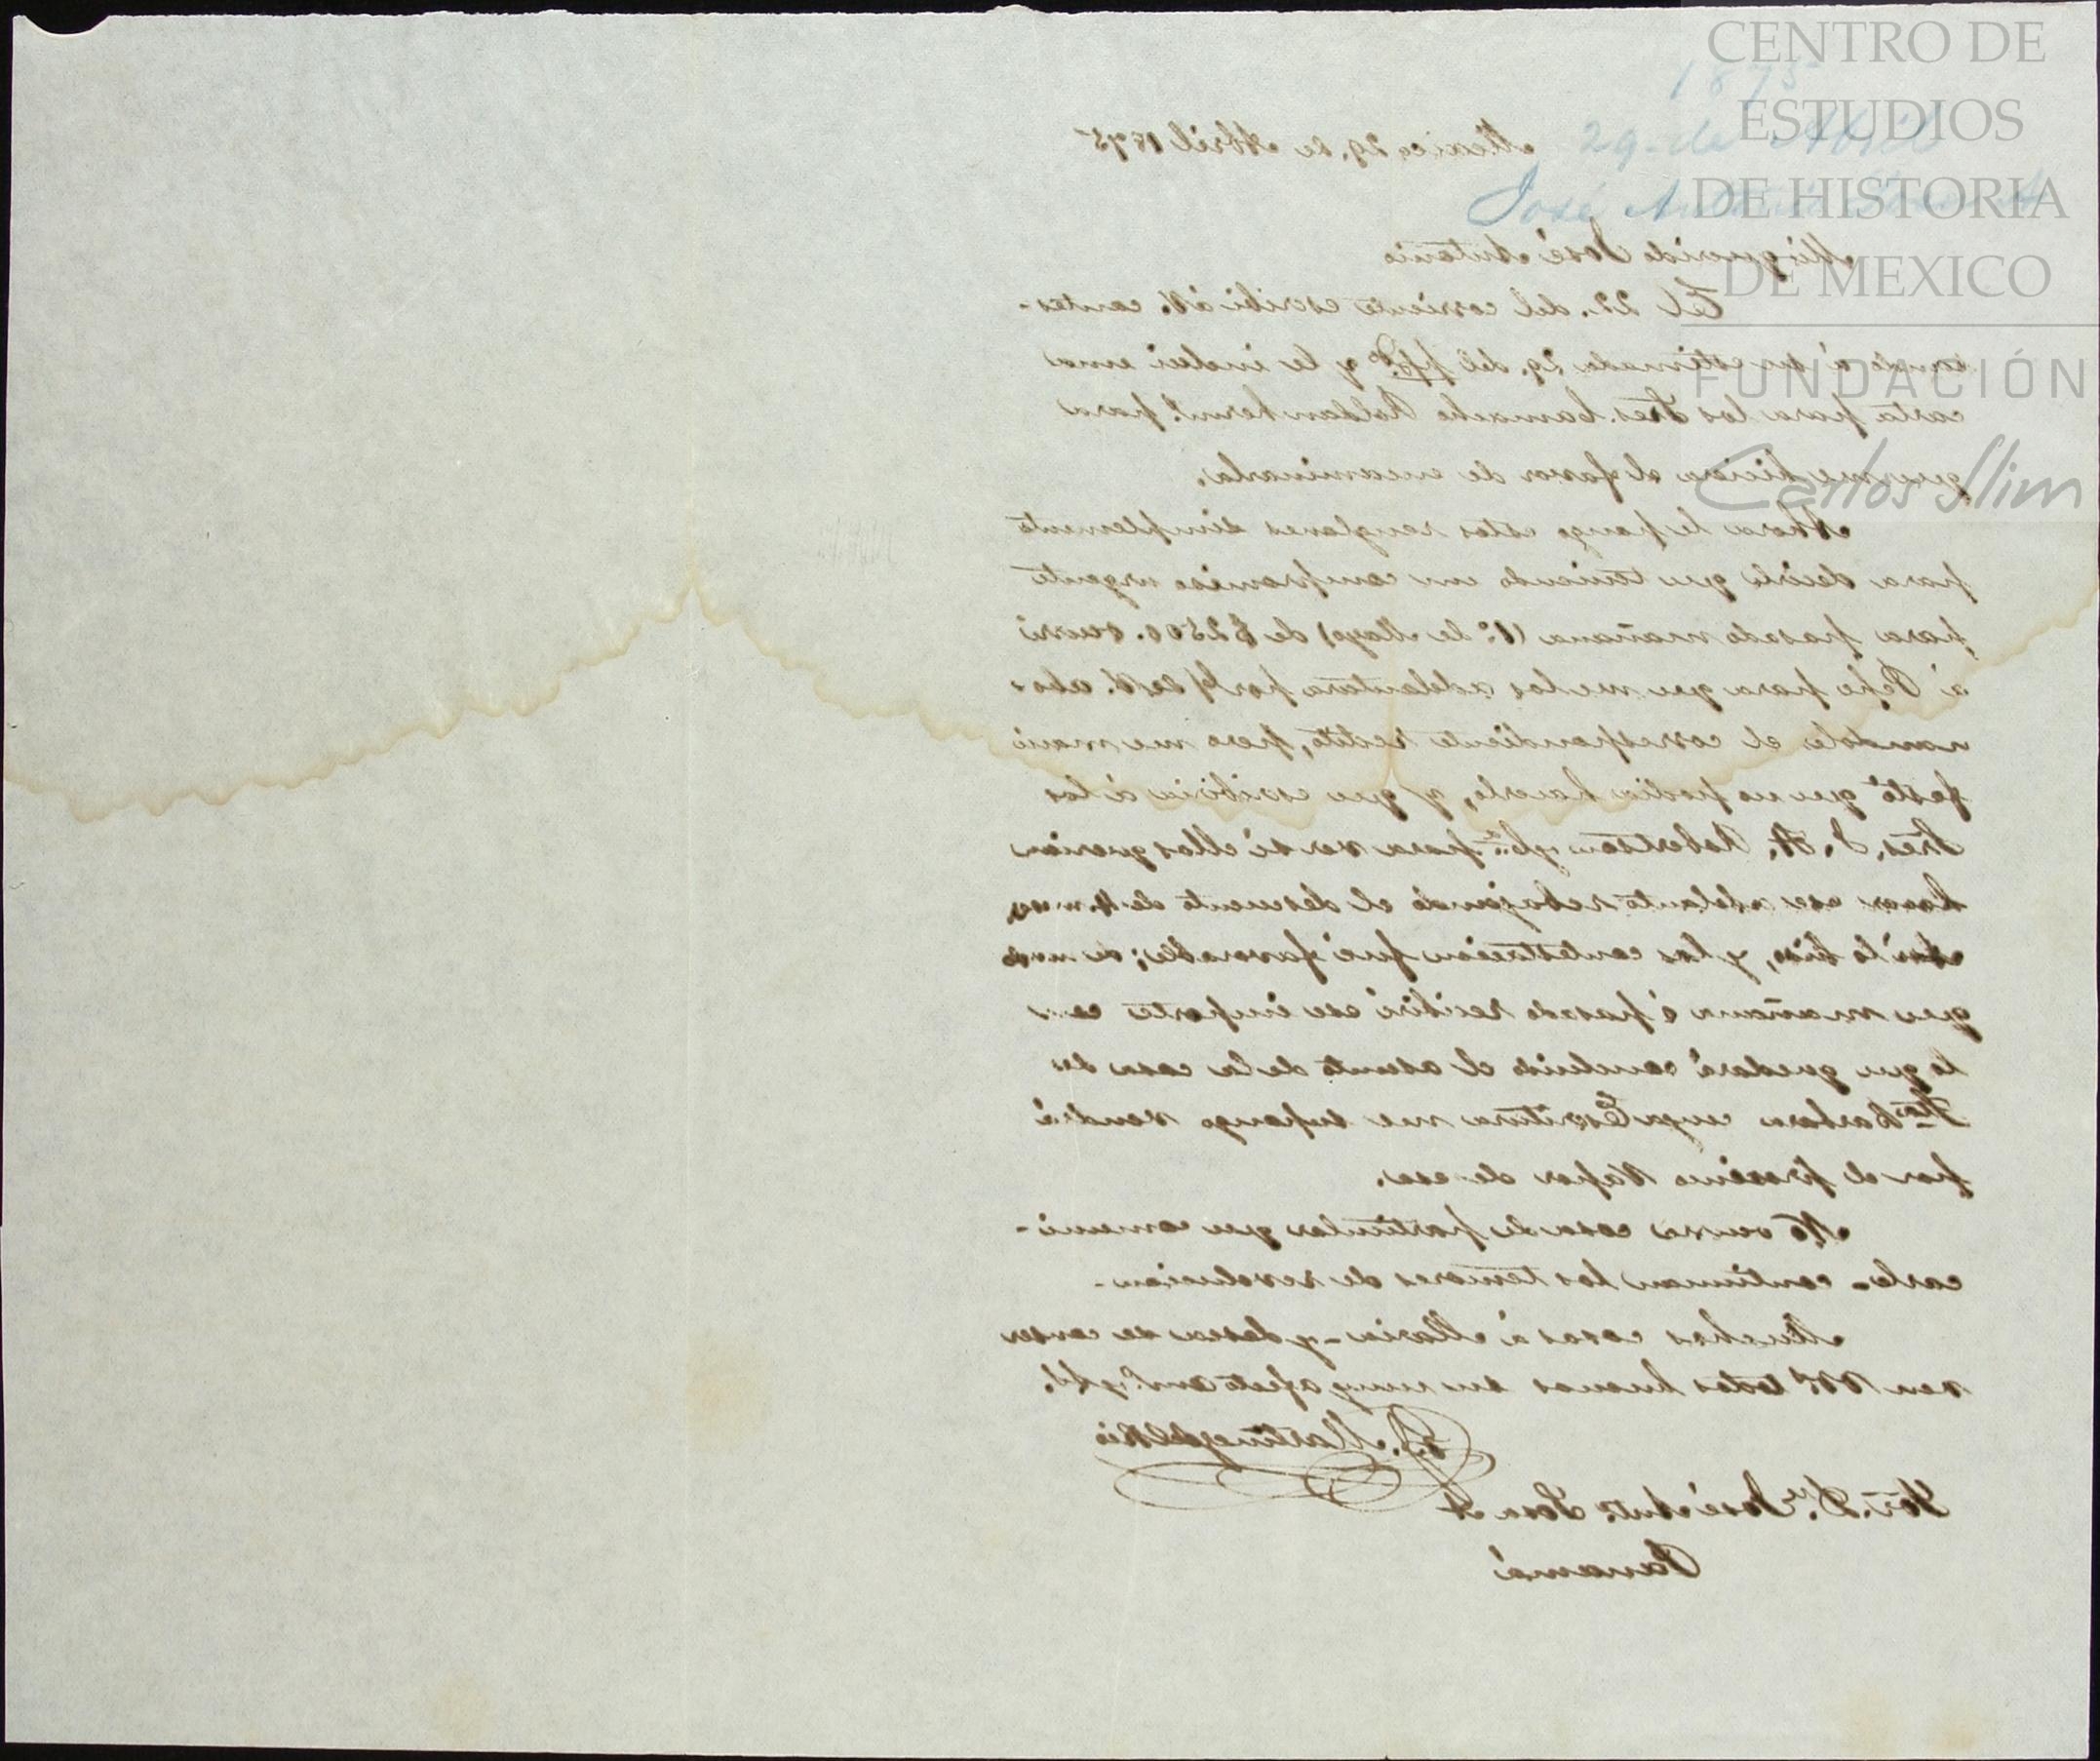 CENTRO DE
ESTUDIOS
DE HISTORIA
DE MEXICO
FUNDACIÓN
Carlos Slim
1875
29 de Abril
José
Mexico 29. de Abril 1875
Mi querido José Antonio
El 22. del corriente escribi á V. contes-
tando á su estimada 29. del ppdo. y le inclui una
carta para los Sres. Camacho Roldan herms. para
que me hiciera el favor de encaminarla.
Ahora le pongo estos renglones simplemente
para decirle que teniendo un compromiso urgente
para pasado mañana (1º. de Mayo) de $2500. ocurri
á Pepe para que me los adelantara por de V. abo-
nandoles el correspondiente redito, pero me mani
festó que no podia hacerlo, y que escribiria á los
Sres. Robertson para ver si ellos querian
hacer ese adelanto rebajando el descuento de
Asi lo hizo, y la contestacion fué favorable; de modo
que mañana ó pasado recibiré ese importe con
lo que quedará concluido el asunto de la casa de
Sta. Barbara cuya Escritura me supongo vendrá
por el proximo Vapor de esa.
No ocurre cosa de particular que comuni-
carle - continuan los temores de revolucion -
Muchas cosas á Maria - y desea se conser
ven VV. todos buenos su muy afecto
P. Martinez del Rio
Sor. Dn. José Anto. Sosa
Panamá